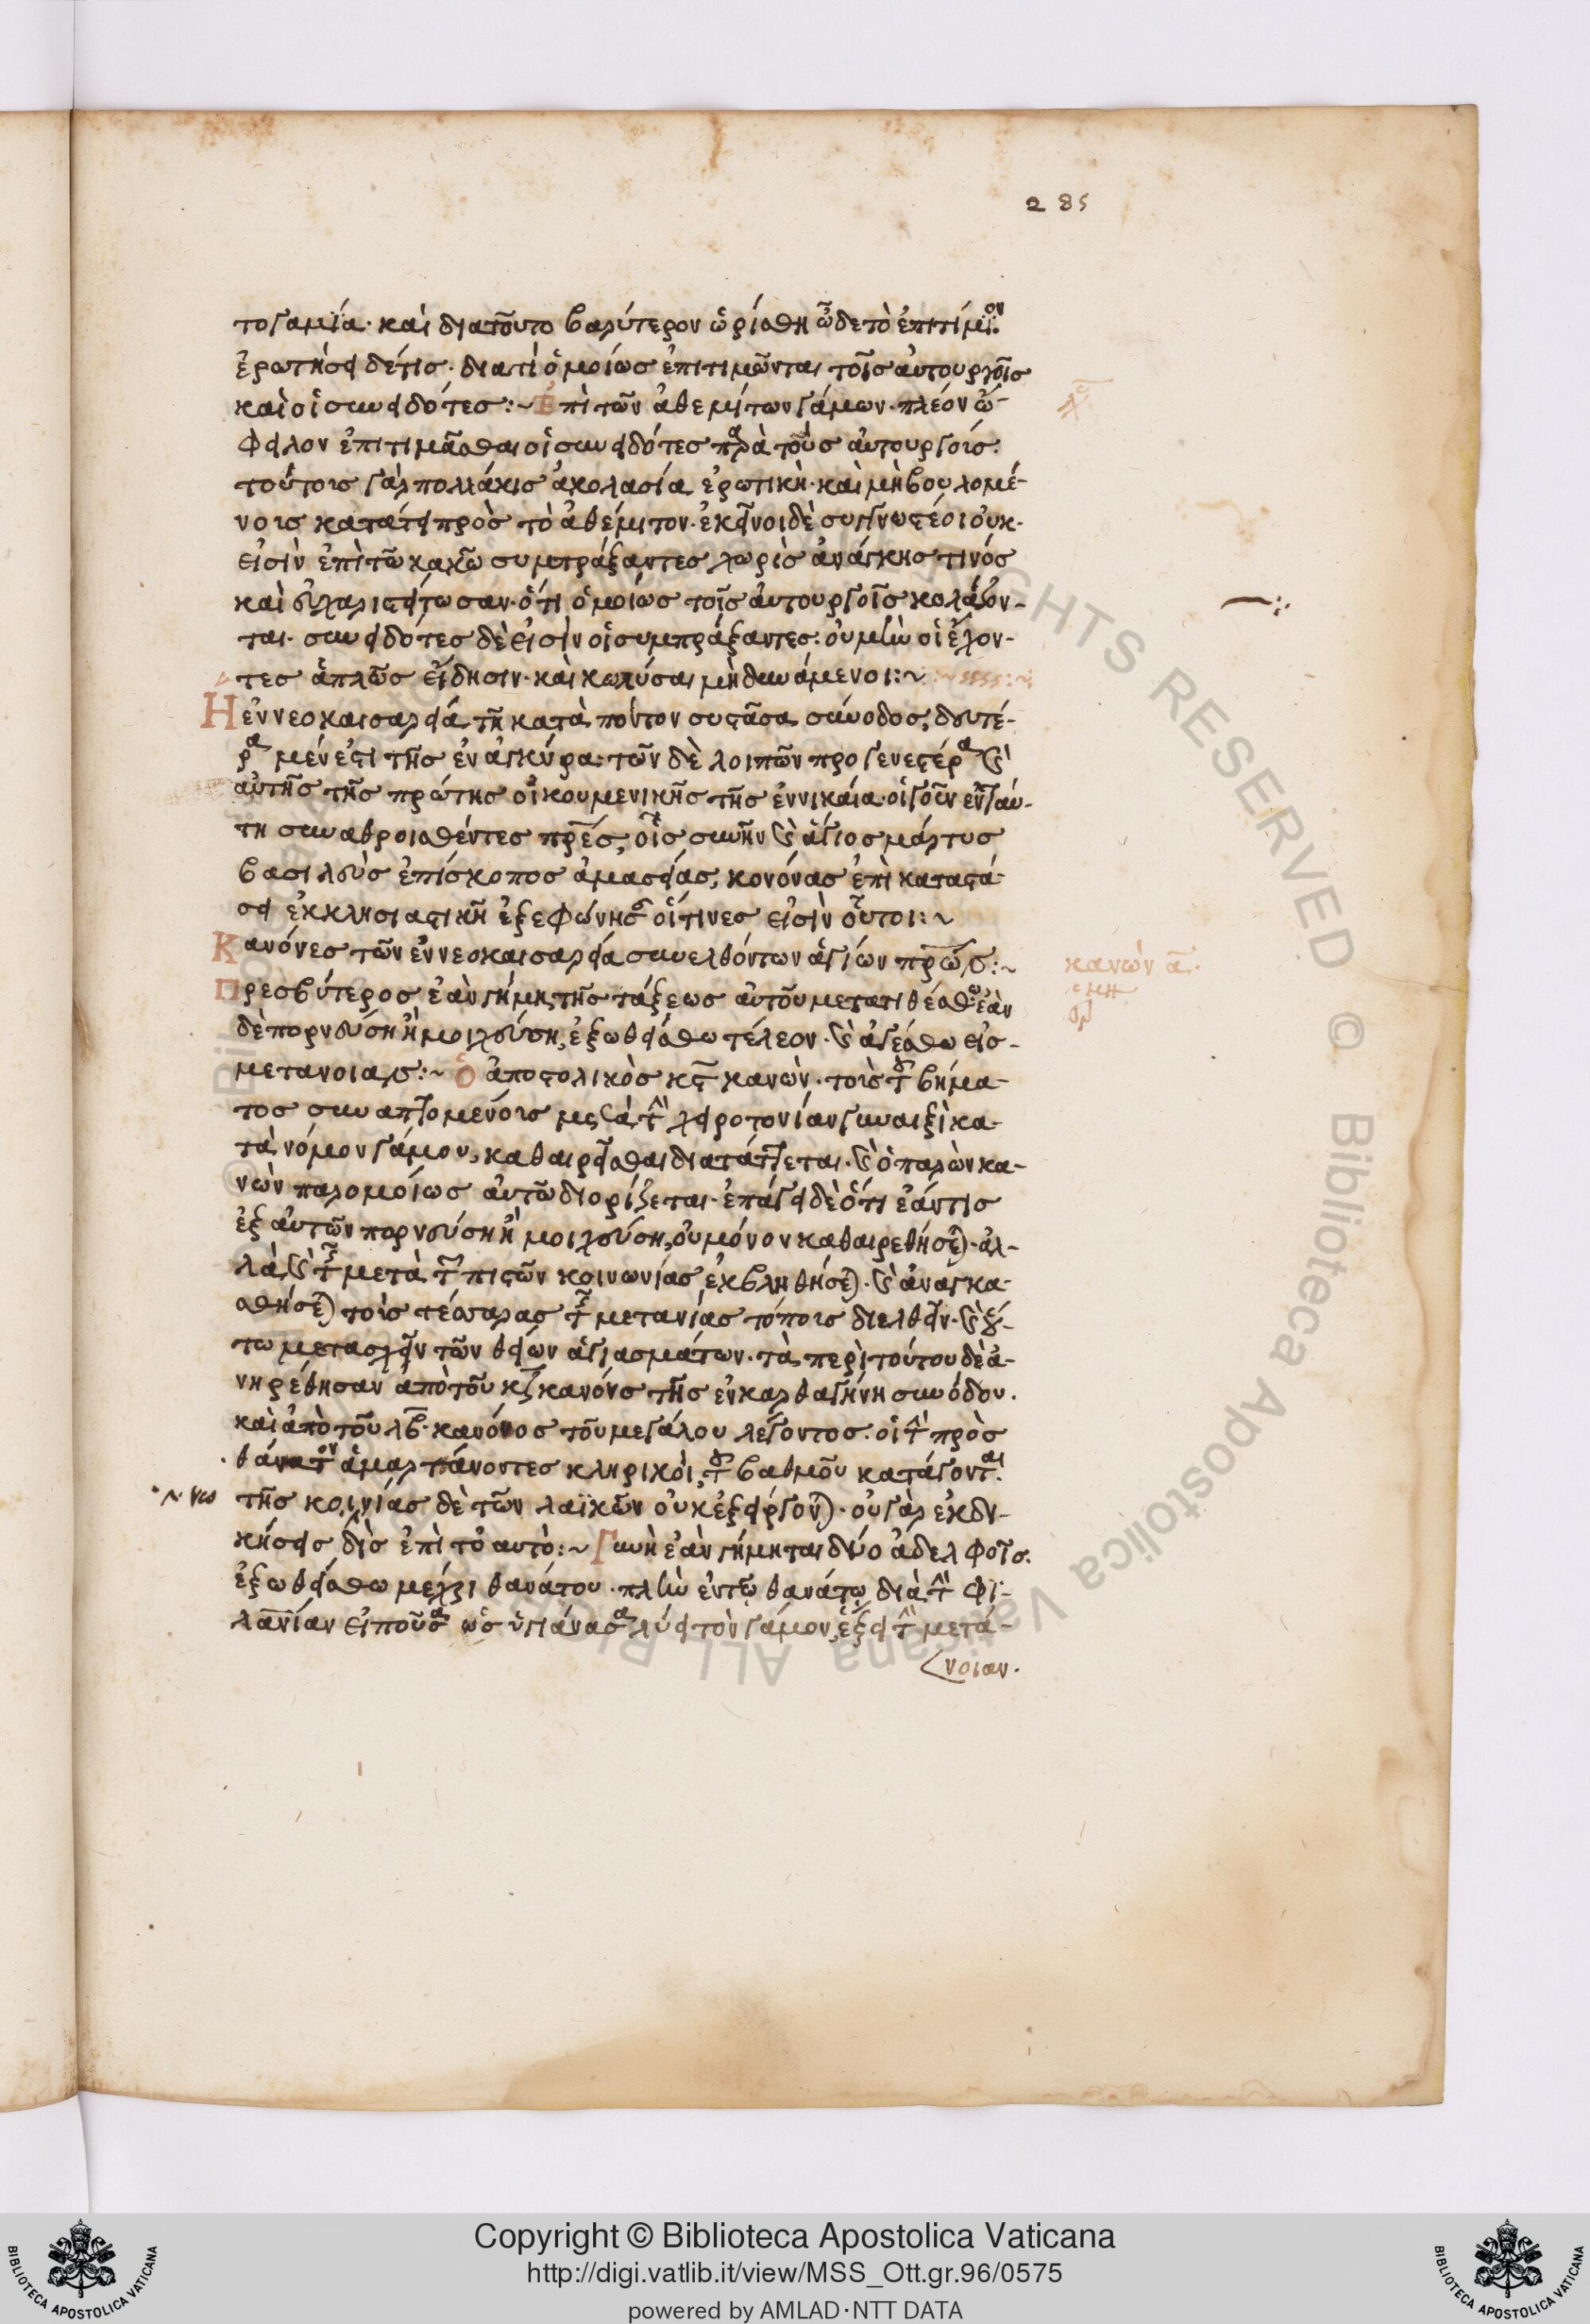 285
τογαμία· καὶ διατοῦτο βαρύτερον ὡρίσθη ὧδε τὸ ἐπιτίμιον.
ἐρωτήσει δέ τις· διατί ὁμοίως ἐπιτιμῶνται τοῖς αὐτουργοῖς
καὶ οἱ συνειδότες :~ Ἐπὶ τῶν ἀθεμίτων γάμων· πλέον ὤ-
φειλον ἐπιτιμᾶσθαι οἱ συνειδότες παρὰ τοὺς αὐτουργούς.
τούτους γὰρ πολλάκις ἀκολασία ἐρωτικὴ· καὶ μὴ βουλομέ-
νους κατατείπρὸς τὸ ἀθέμιτον· ἐκεῖνοι δὲ συγγνωστέοι οὐκ
εἰσὶν ἐπὶ τῶ κακῶ συμπράξαντες χωρὶς ἀνάγκης τινός
καὶ εὐχαριστείτωσαν· ὅτι ὁμοίως τοῖς αὐτουργοῖς κολάζον-
ται· συνειδότες δὲ εἰσὶν οἱ συμπράξαντες· οὐ μὴν οἱ ἔχον-
τες ἁπλῶς εἴδησιν· καὶ κωλύσαι μὴ δυνάμενοι :~
Ἡ ἐν νεοκαισαρεία τῆ κατὰ πόντον συστᾶσα σύνοδος, δευτέ-
ρα μέν ἐστι τῆς ἐν ἀγκύρα· τῶν δὲ λοιπῶν προγενεστέρα καὶ
αὐτῆς τῆς πρώτης οἰκουμενικῆς τῆς ἐν νικαία· οἱ γοῦν ἐν ταύ-
τη συναθροισθέντες πρες, οἷς συνῆν καὶ ὁ ἅγιος μάρτυς
βασιλεὺς ἐπίσκοπος ἀμασείας, κανόνας ἐπὶ καταστά-
σει ἐκκλησιαστικῆ ἐξεφώνησαν οἵτινες εἰσὶν οὗτοι :~
Κανόνες τῶν ἐν νεοκαισαρεία συνελθόντων ἁγίων πρων :~
κανὼν α.
Πρεσβύτερος ἐὰν γήμη, τῆς τάξεως αὐτοῦ μετατιθέσθω· ἐὰν
δὲ πορνεύση ἢ μοιχεύση, ἐξωθείσθω τέλεον· καὶ ἀγέσθω εἰς
μετάνοιαν :~ Ὁ ἀποστολικὸς κϛ κανὼν· τοὺς τοῦ βήμα-
τος συναπτομένους μετὰ τὴν χειροτονίαν γυναιξὶ κα-
τὰ νόμον γάμου, καθαιρεῖσθαι διατάττεται· καὶ ὁ παρὼν κα-
νὼν παρομοίως αὐτῶ διορίζεται· ἐπάγει δὲ ὅτι ἐάν τις
ἐξ αὐτῶν πορνεύση ἢ μοιχεύση, οὐ μόνον καθαιρεθήσεται· ἀλ-
λὰ καὶ τῆς μετὰ τῶν πιστῶν κοινωνίας ἐκβληθήσεται· καὶ ἀναγκα-
σθήσεται τοὺς τέσσαρας τῆς μετανίας τόπους διελθεῖν· καὶ οὕ-
τω μετασχεῖν τῶν θείων ἁγιασμάτων· τὰ περὶ τούτου δὲ ἀ-
νηρέθησαν ἀπὸ τοῦ κζ κανόνος τῆς ἐν καρθαγένη συνόδου·
καὶ ἀπὸ τοῦ λβ· κανόνος τοῦ μεγάλου λέγοντος· οἱ τὴν πρὸς
θάνατον ἁμαρτάνοντες κληρικοὶ, τοῦ βαθμοῦ κατάγονται.
τῆς κοινωνίας δὲ τῶν λαϊκῶν οὐκ ἐξείργονται· οὐ γὰρ ἐκδι-
κήσεις δὶς ἐπὶ τὸ αὐτό :~ Γυνὴ ἐὰν γήμηται δύο ἀδελφοῖς.
ἐξωθείσθω μέχρι θανάτου· πλὴν ἐν τῶ θανάτω διὰ τὴν φι-
λανίαν εἰποῦσα ὡς ὑγιάνασα λύει τὸν γάμον, ἕξει τὴν μετά-
νοιαν.
Copyright © Biblioteca Apostolica Vaticana
http://digi.vatlib.it/view/MSS_Ott.gr.96/0575
powered by AMLAD·NTT DATA